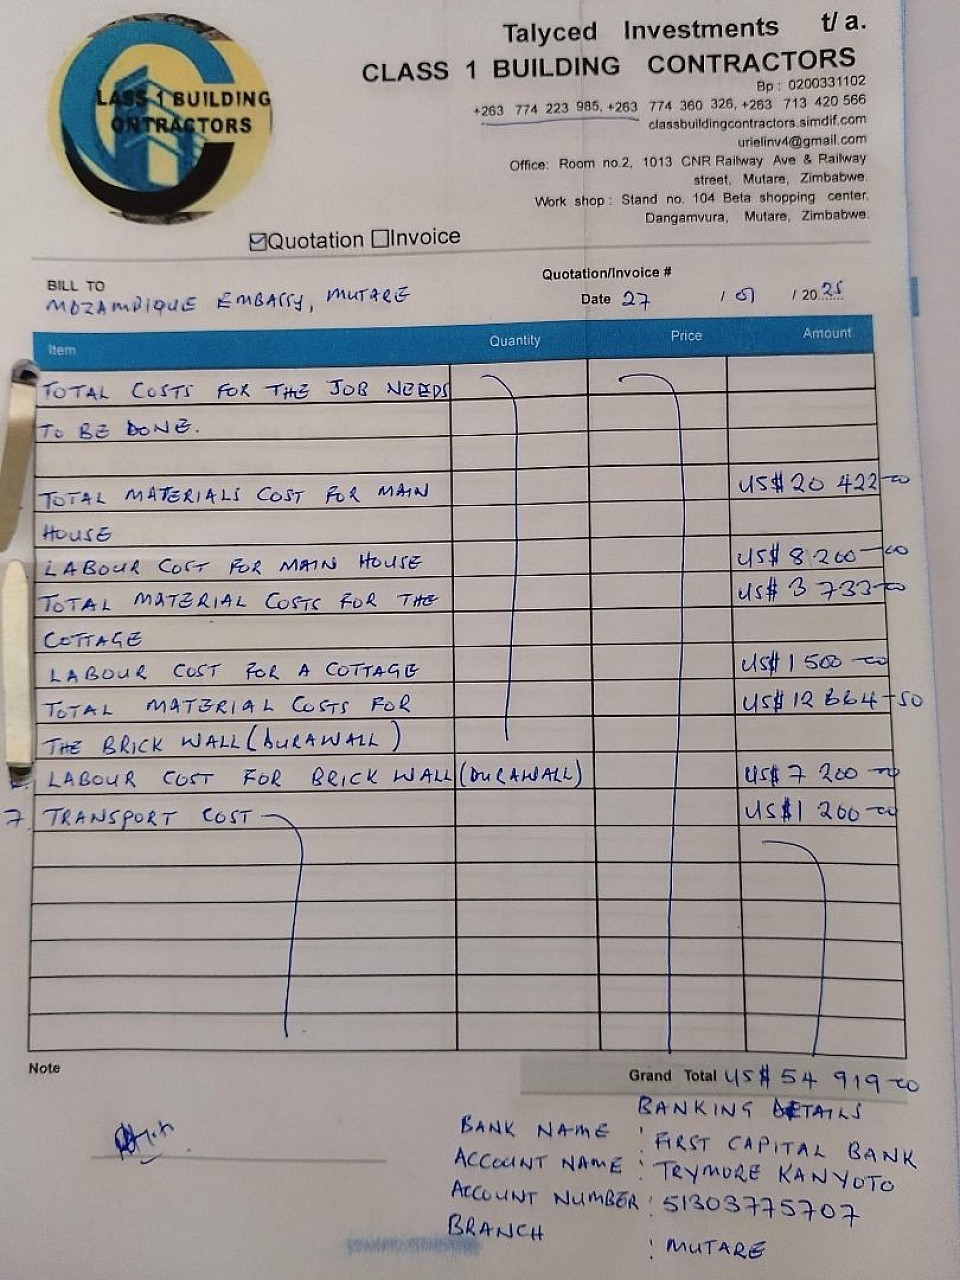 Talyced Investments t/a.
CLASS 1 BUILDING CONTRACTORS
Bp : 0200331102
+263 774 223 985, +263 774 360 326, +263 713 420 566
classbuildingcontractors.simdif.com
urielinv4@gmail.com
Office: Room no.2, 1013 CNR Railway Ave & Railway
street, Mutare, Zimbabwe.
Work shop : Stand no. 104 Beta shopping center,
Dangamvura, Mutare, Zimbabwe.
LASS 1 BUILDING
ONTRACTORS
☑Quotation ☐Invoice
BILL TO
MOZAMBIQUE EMBASSY, MUTARE
Quotation/Invoice #
Date 27 / 01 / 2025
Item Quantity Price Amount
TOTAL COSTS FOR THE JOB NEEDS
TO BE DONE.
TOTAL MATERIALS COST FOR MAIN US$ 20 422-00
HOUSE
LABOUR COST FOR MAIN HOUSE US$ 8 200-00
TOTAL MATERIAL COSTS FOR THE US$ 3 733-00
COTTAGE
LABOUR COST FOR A COTTAGE US$ 1 500-00
TOTAL MATERIAL COSTS FOR US$ 12 664-50
THE BRICK WALL (DURAWALL)
LABOUR COST FOR BRICK WALL (DURAWALL) US$ 7 200-00
7. TRANSPORT COST US$ 1 200-00
Note
Grand Total US$ 54 919-00
BANKING DETAILS
BANK NAME : FIRST CAPITAL BANK
ACCOUNT NAME : TRYMORE KANYOTO
ACCOUNT NUMBER : 51303775707
BRANCH : MUTARE